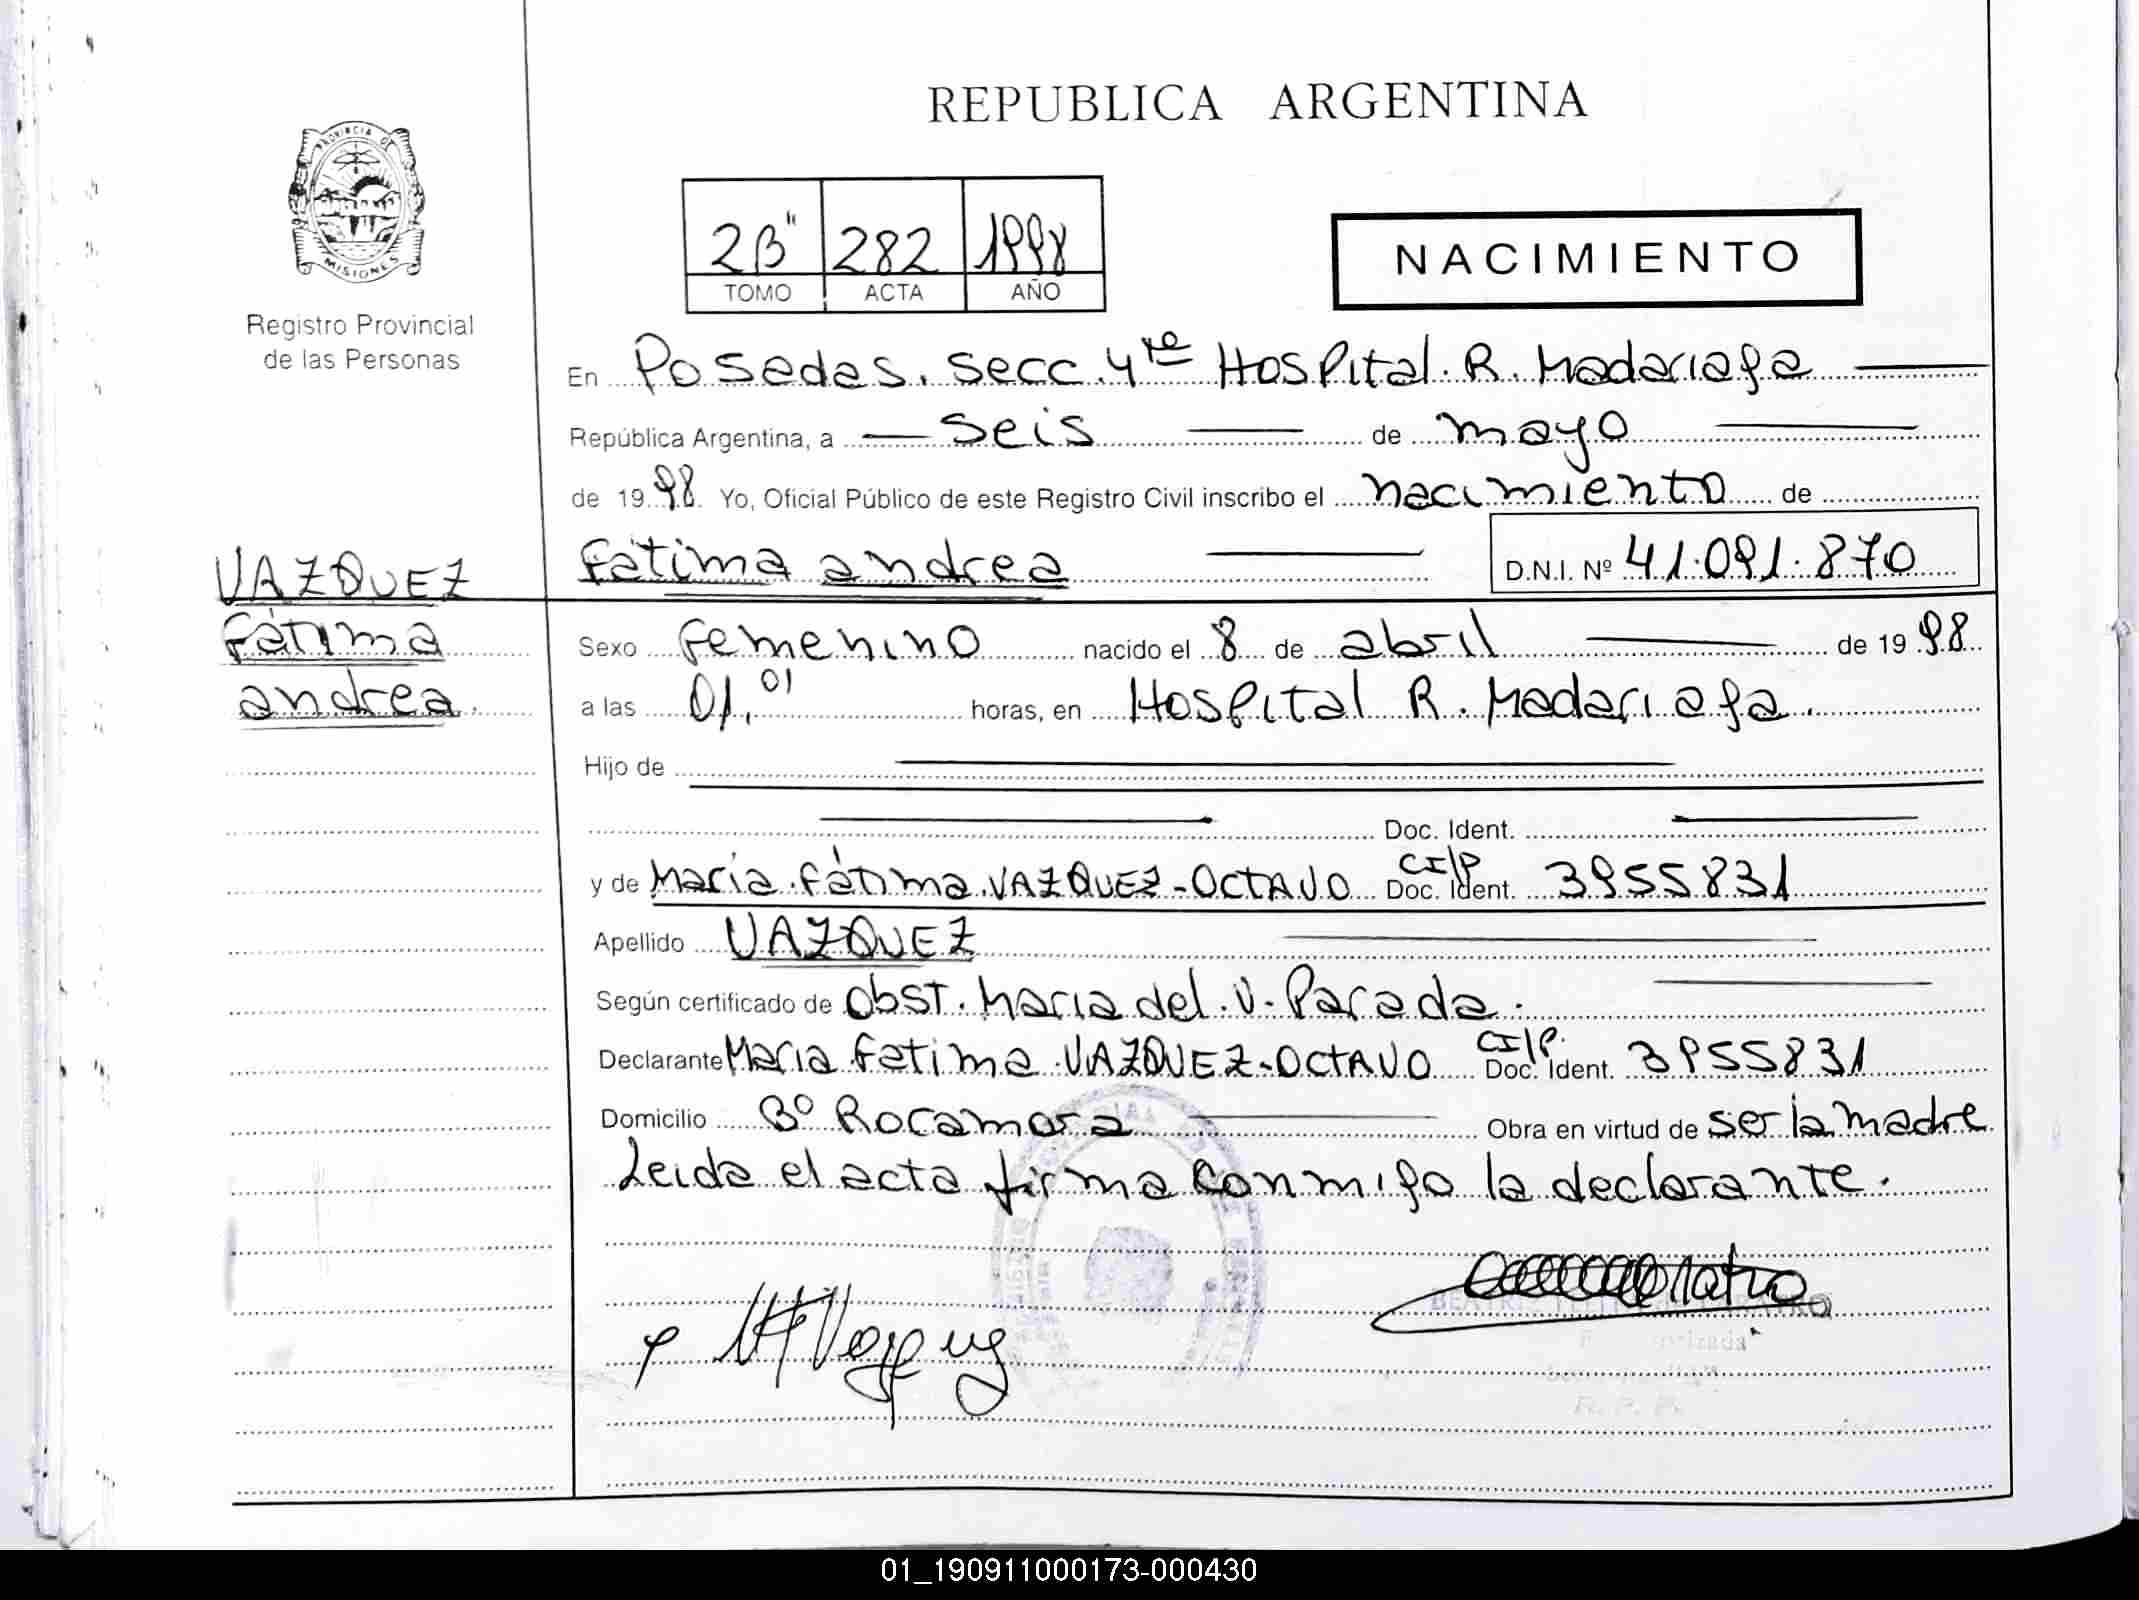 REPUBLICA ARGENTINA
PROVINCIA DE
MISIONES
Registro Provincial
de las Personas
2B" 282 1998
TOMO ACTA AÑO
NACIMIENTO
En Posadas. secc. 4ta Hospital. R. Madariaga
República Argentina, a seis de mayo
de 1998. Yo, Oficial Público de este Registro Civil inscribo el nacimiento de
Fátima andrea D.N.I. Nº 41.091.870
VAZQUEZ
Fátima
andrea.
Sexo Femenino nacido el 8 de abril de 1998
a las 01,01 horas, en Hospital R. Madariaga.
Hijo de
Doc. Ident.
y de María. Fátima. VAZQUEZ-OCTAVO CI/P Doc. Ident. 3955831
Apellido VAZQUEZ
Según certificado de Obst. Maria del. V. Parada.
Declarante Maria Fatima VAZQUEZ-OCTAVO CI/P. Doc. Ident. 3955831
Domicilio Bº Rocamora Obra en virtud de ser la madre
Leida el acta firma conmigo la declarante.
BEATRIZ
R. P. P.
01_190911000173-000430